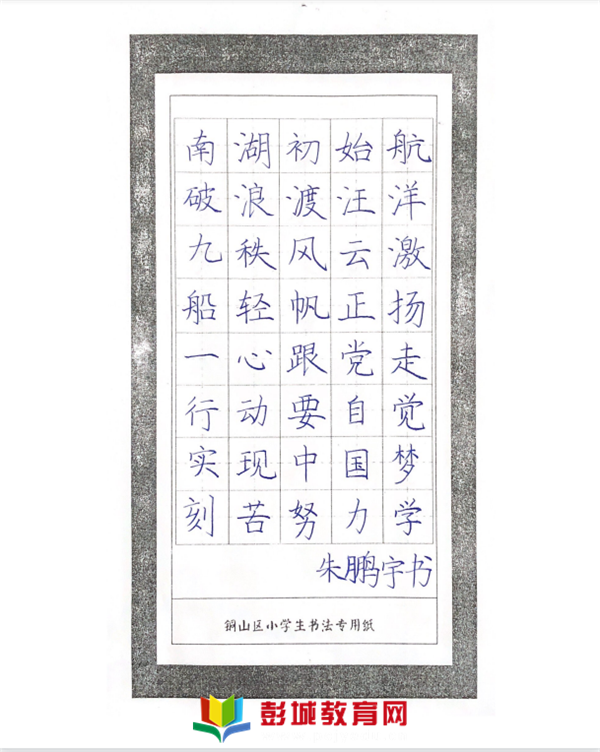 南湖初始航
破浪渡汪洋
九秩风云激
船轻帆正扬
一心跟党走
行动要自觉
实现中国梦
刻苦努力学
朱鹏宇书
铜山区小学生书法专用纸
彭城教育网